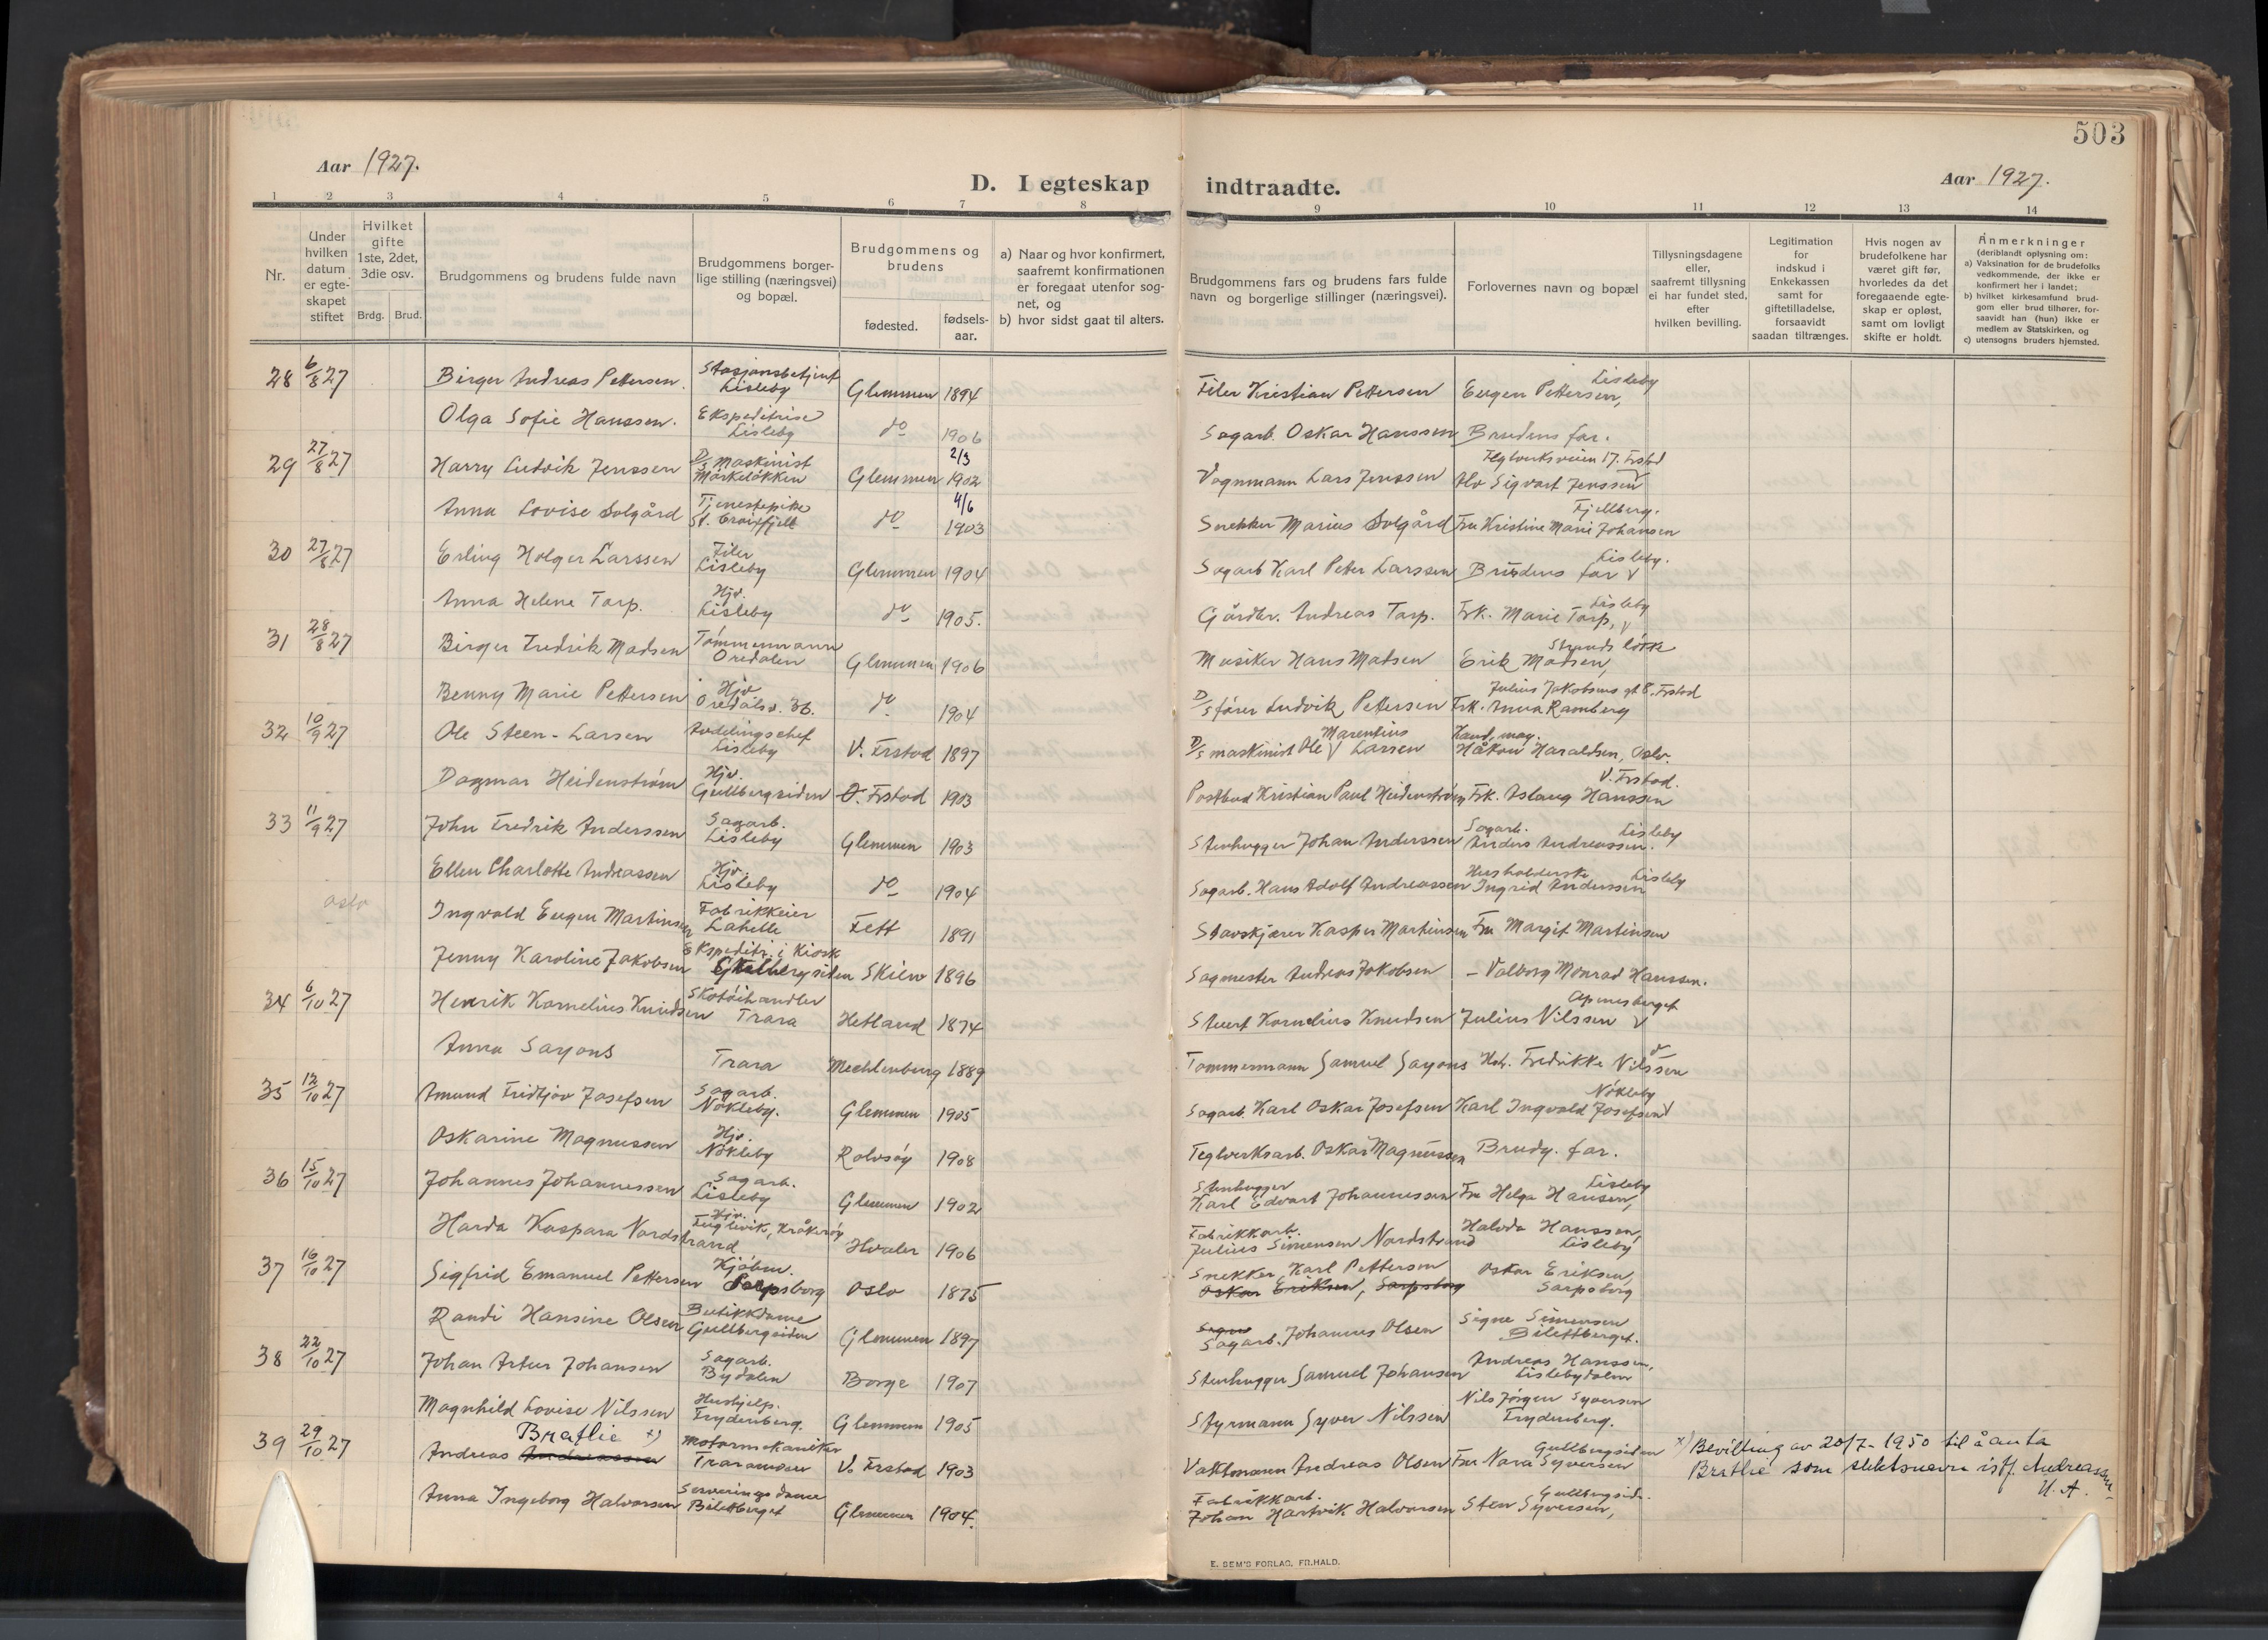 503
Aar 1927.
D. I egteskap indtraadte.
Aar 1927.
1 2 3 4 5 6 7 8 9 10 11 12 13 14
Nr.
Under hvilken datum er egteskapet stiftet
Hvilket gifte 1ste, 2det, 3die osv.
Brdg. Brud.
Brudgommens og brudens fulde navn
Brudgommens borgerlige stilling (næringsvei) og bopæl.
Brudgommens og brudens
fødested.
fødselsaar.
a) Naar og hvor konfirmert, saafremt konfirmationen er foregaat utenfor sognet, og
b) hvor sidst gaat til alters.
Brudgommens fars og brudens fars fulde navn og borgerlige stillinger (næringsvei).
Forlovernes navn og bopæl
Tillysningsdagene eller, saafremt tillysning ei har fundet sted, efter hvilken bevilling.
Legitimation for indskud i Enkekassen samt for giftetilladelse, forsaavidt saadan tiltrænges.
Hvis nogen av brudefolkene har været gift før, hvorledes da det foregaaende egteskap er opløst, samt om lovligt skifte er holdt.
Anmerkninger
(deriblandt oplysning om:
a) Vaksination for de brudefolks vedkommende, der ikke er konfirmert her i landet;
b) hvilket kirkesamfund brudgom eller brud tilhører, forsaavidt han (hun) ikke er medlem av Statskirken, og
c) utensogns bruders hjemsted.
28 6/8 27 Birger Andreas Pettersen. Stasjonsbetjent Lisleby Glemmen 1894 Filer Kristian Pettersen Eugen Pettersen, Lisleby
Olga Sofie Hanssen. Ekspeditrise Lisleby do 1906 Sagarb. Oskar Hanssen Brudens far.
29 27/8 27 Harry Ludvik Jenssen D/s Maskinist Mørkeløkken Glemmen 2/3 1902 Vognmann Lars Jenssen Alv Sigvart Jenssen Teglverksveien 17. Frstad
Anna Lovise Solgård Tjenestepike do 4/6 1903 Snekker Marius Solgård Fru Kristine Marie Johansen Fjellberg.
30 27/8 27 Erling Holger Larssen Filer Lisleby Glemmen 1904 Sagarb Karl Peter Larssen Brudens far Lisleby.
Anna Helene Tarp. Hjv. Lisleby do 1905. Gårdbr. Andreas Tarp. Frk. Marie Tarp, Lisleby
31 28/8 27 Birger Fredrik Madsen Tømmermann Oredalen Glemmen 1906 Musiker Hans Madsen Erik Madsen, Strands løkk
Benny Marie Pettersen Hjv Oredalsv. 36. do 1904 D/s fører Ludvik Pettersen Frk. Anna Ramberg Julius Jakobsens gt 8. Frstad
32 10/9 27 Ole Steen-Larsen Avdelingschef Lisleby V. Frstad 1897 D/s maskinist Ole Marentius Larsen Kand. mag. Håkon Haraldsen, Oslo.
Dagmar Heidenstrøm Hjv. Gullbergsiden O. Frstad 1903 Postbud Kristian Paul Heidenstrøm Frk. Aslaug Hanssen V. Frstad.
33 11/9 27 John Fredrik Anderssen Sagarb. Lisleby Glemmen 1903 Stenhugger Johan Anderssen Sagarb. Anders Andreassen. Lisleby
Ellen Charlotte Andreassen Hjv. Lisleby do 1904 Sagarb. Hans Adolf Andreassen Husholderske Ingrid Anderssen Lisleby
oslo Ingvald Eugen Martinsen Fabrikkeier Lahelle Fett 1891 Stavskjærer Kasper Martinsen Fru Margit Martinsen
Jenny Karoline Jakobsen Ekspeditr. i Kiosk Gullbergsiden Skien 1896 Sagmester Andreas Jakobsen - Valborg Monrad Hanssen.
34 6/10 27 Henrik Kornelius Knudsen Skotøihandler Trara Hetland 1874 Stuert Kornelius Knudsen Julius Nilssen Apenesberget
Anna Sayons Trara Mechlenburg 1889 Tømmermann Samuel Sayons Hr. Fredrikke Nilssen do
35 12/10 27 Amund Fridtjov Josefsen Sagarb. Nøkleby. Glemmen 1905 Sagarb. Karl Oskar Josefsen Karl Ingvald Josefsen Nøkleby
Oskarine Magnussen Hjv. Nøkleby Rolvsøy 1908 Teglverksarb. Oskar Magnussen Brudg. far.
36 15/10 27 Johannes Johannessen Sagarb. Lisleby Glemmen 1902 Stenhugger Karl Edvart Johannessen Fru Helga Hansen, Lisleby
Harda Kaspara Nordstrand Hjv. Fuglevik, Kråkerøy Hvaler 1906 Fabrikkarb. Julius Simensen Nordstrand Halvda Hanssen, Lisleby
37 16/10 27 Sigfrid Emanuel Pettersen Kjøbm. Sarpsborg Oslo 1875 Snekker Karl Pettersen Oskar Eriksen, Sarpsborg Oskar Eriksen, Sarpsborg
Randi Hansine Olsen Butikkdame Gullbergsiden Glemmen 1897 Signe Sagarb. Johannes Olsen Signe Simensen Bilettberget.
38 22/10 27 Johan Artur Johansen Sagarb. Bydalen Borge 1907 Stenhugger Samuel Johansen Andreas Hanssen, Lislebydalen
Magnhild Lovise Nilssen Hushjelp. Frydenberg. Glemmen 1905 Styrmann Syver Nilssen Nils Jørgen Syversen Frydenberg.
39 29/10 27 Andreas Andreassen Bratlie x) Motormekaniker Traraneset V. Frstad 1903 Vaktmann Andreas Olsen Fru Nara Syversen Gullbergsiden x) Bevilling av 20/7-1950 til å anta
Bratlie som slektsnavn istf. Andreassen
H. A.
Anna Ingeborg Halvorsen Serveringsdame Bilettberget Glemmen 1904. Fabrikkarb. Johan Hartvik Halvorsen Sten Syversen, Gullbergsid.
E. SEM'S FORLAG, FR.HALD.